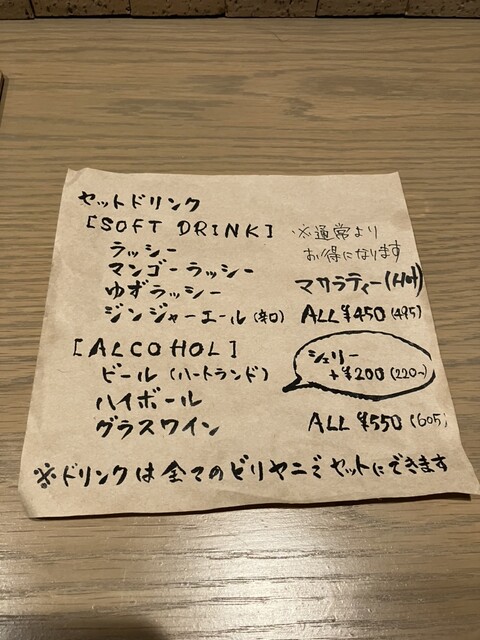 セットドリンク
[SOFT DRINK] ※通常より
お得になります
ラッシー
マンゴーラッシー
マサラティー(Hot)
ゆずラッシー
ジンジャーエール(辛口) ALL ¥450(495)
[ALCOHOL]
シェリー
+¥200(220~)
ビール(ハートランド)
ハイボール
グラスワイン ALL ¥550(605)
※ドリンクは全てのビリヤニでセットにできます